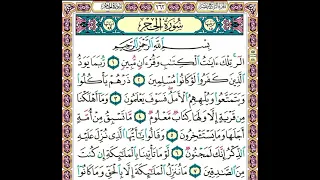 سُورَةُ الحِجْرِ
بِسْمِ اللَّهِ الرَّحْمَٰنِ الرَّحِيمِ
الٓر تِلْكَ ءَايَٰتُ ٱلْكِتَٰبِ وَقُرْءَانٍ مُّبِينٍ ١ رُّبَمَا يَوَدُّ
ٱلَّذِينَ كَفَرُوا۟ لَوْ كَانُوا۟ مُسْلِمِينَ ٢ ذَرْهُمْ يَأْكُلُوا۟
وَيَتَمَتَّعُوا۟ وَيُلْهِهِمُ ٱلْأَمَلُ فَسَوْفَ يَعْلَمُونَ ٣ وَمَآ أَهْلَكْنَا
مِن قَرْيَةٍ إِلَّا وَلَهَا كِتَابٌ مَّعْلُومٌ ٤ مَّا تَسْبِقُ مِنْ أُمَّةٍ
أَجَلَهَا وَمَا يَسْتَـْٔخِرُونَ ٥ وَقَالُوا۟ يَٰٓأَيُّهَا ٱلَّذِى نُزِّلَ عَلَيْهِ
ٱلذِّكْرُ إِنَّكَ لَمَجْنُونٌ ٦ لَّوْ مَا تَأْتِينَا بِٱلْمَلَٰٓئِكَةِ إِن كُنتَ
مِنَ ٱلصَّٰدِقِينَ ٧ مَا نُنَزِّلُ ٱلْمَلَٰٓئِكَةَ إِلَّا بِٱلْحَقِّ وَمَا كَانُوٓا۟